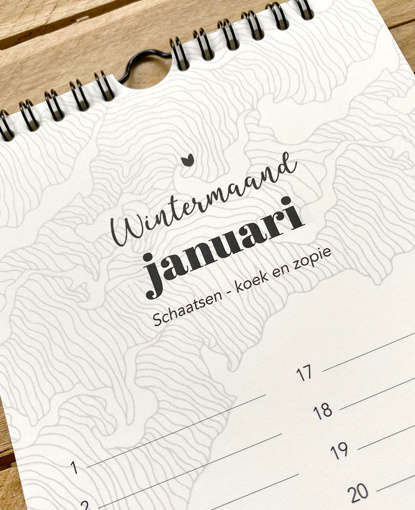 Wintermaand
januari
Schaatsen - koek en zopie
17
18
1
19
2
20